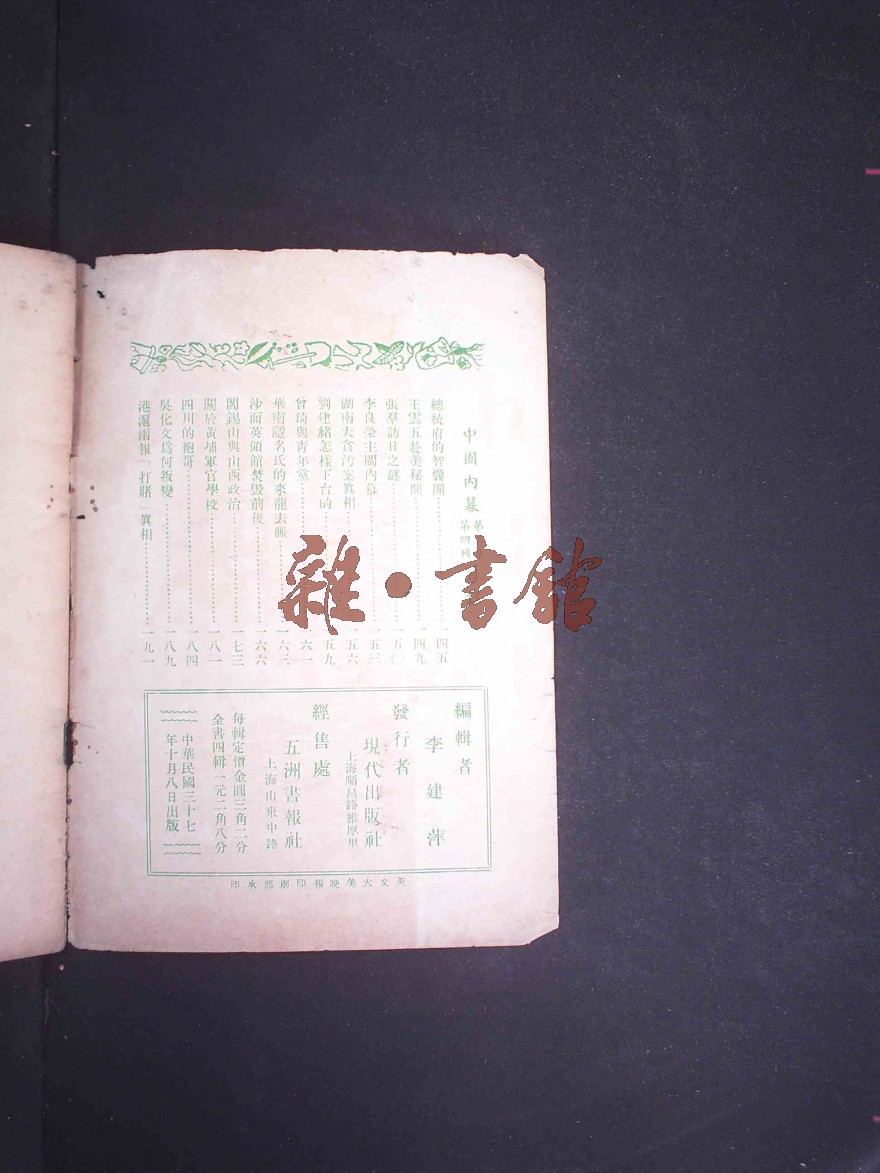 中國內幕
第
第四輯
總統府的智囊團⋯⋯一四五
王雲五赴美秘聞⋯⋯一四九
張羣訪日之謎⋯⋯一五〇
李良榮主閩內幕⋯⋯一五三
湖南大貪污案眞相⋯⋯一五六
劉建緒怎樣下台的⋯⋯一五九
曾琦與青年黨⋯⋯一六一
華南隱名氏的來龍去脈⋯⋯一六三
沙面英領館焚毀前後⋯⋯一六六
閻錫山與山西政治⋯⋯一七三
關於黃埔軍官學校⋯⋯一八一
四川的袍哥⋯⋯一八四
吳化文爲何叛變⋯⋯一八九
港滬兩報「打賭」眞相⋯⋯一九一
雜·書館
編輯者
李建萍
發行者
現代出版社
上海順昌路維厚里
經售處
五洲書報社
上海山東中路
每輯定價金圓三角二分
全書四輯一元二角八分
中華民國三十七
年十月八日出版
英文大美晚報印刷部承印